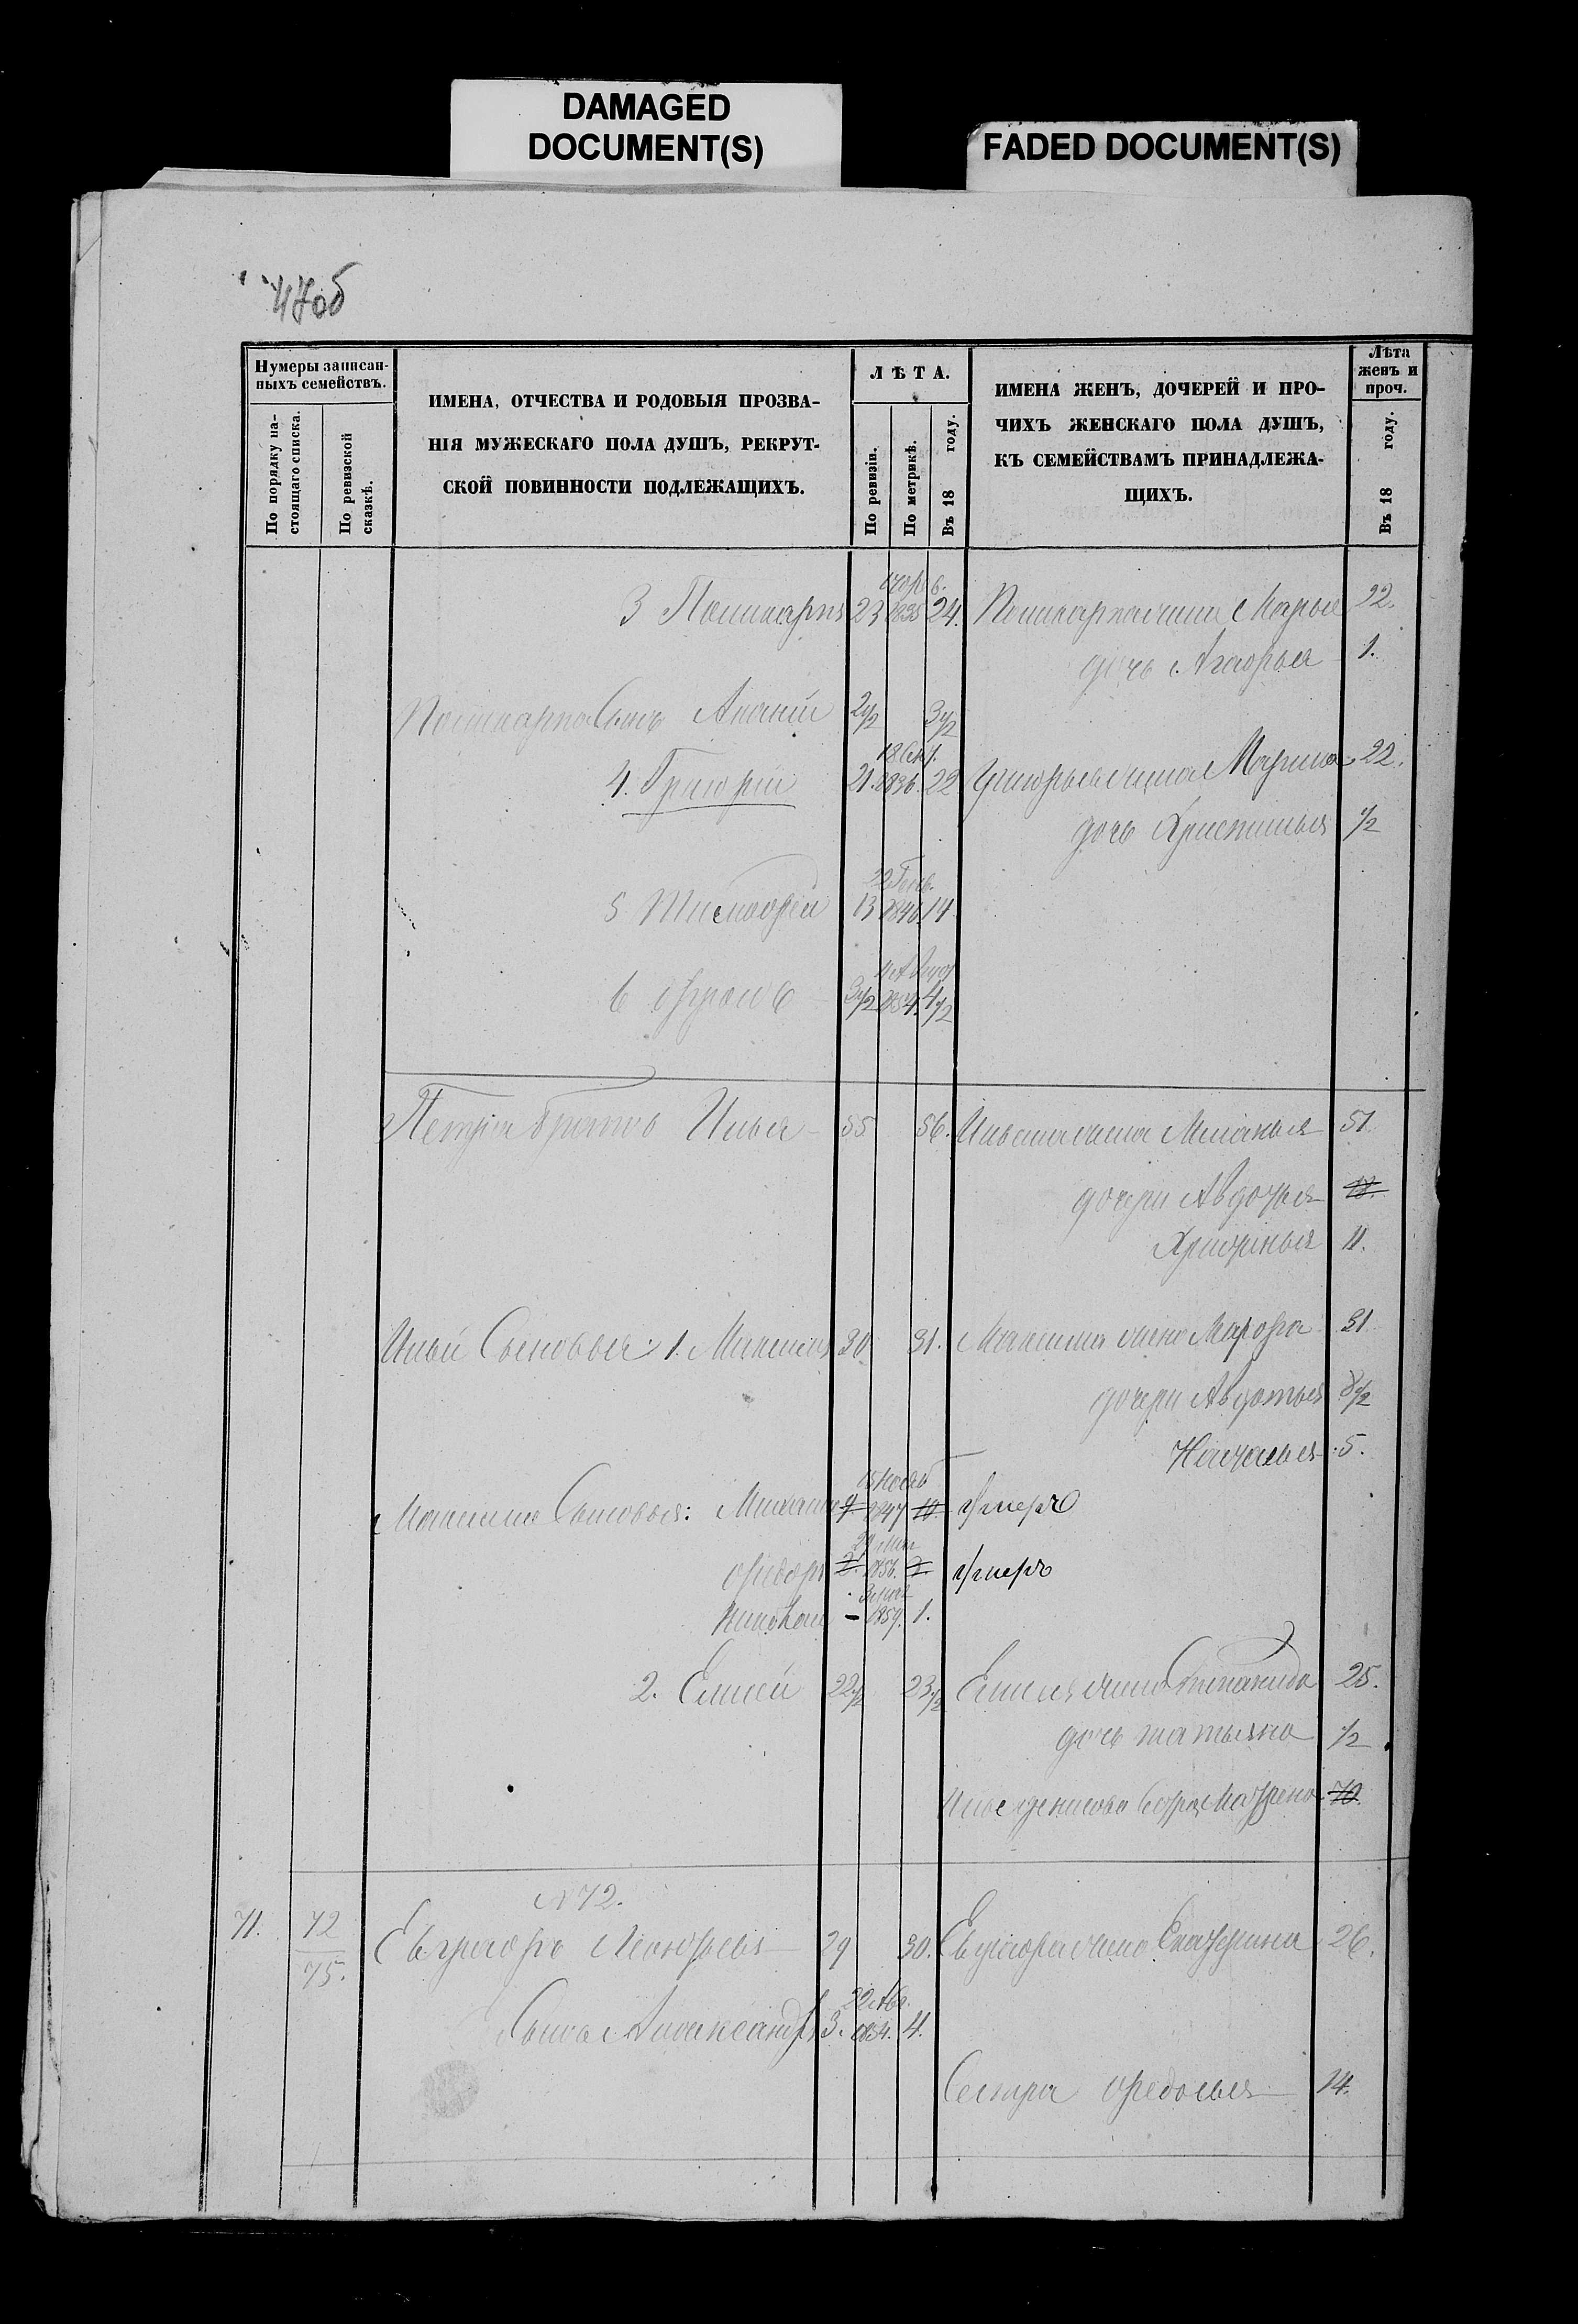 DAMAGED
DOCUMENT(S)
FADED DOCUMENT(S)
47об
Нумеры записан-
ныхъ семействъ.
По порядку на-
стоящаго списка.
По ревизской
сказкѣ.
ИМЕНА, ОТЧЕСТВА И РОДОВЫЯ ПРОЗВА-
НІЯ МУЖЕСКАГО ПОЛА ДУШЪ, РЕКРУТ-
СКОЙ ПОВИННОСТИ ПОДЛЕЖАЩИХЪ.
ЛѢТА.
По ревизіи.
По метрикѣ.
Въ 18 году.
ИМЕНА ЖЕНЪ, ДОЧЕРЕЙ И ПРО-
ЧИХЪ ЖЕНСКАГО ПОЛА ДУШЪ,
КЪ СЕМЕЙСТВАМЪ ПРИНАДЛЕЖА-
ЩИХЪ.
Лѣта
женъ и
проч.
Въ 18 году.
3 Поликарпъ 23 1835 24. Поликарпа жена Марья 22.
дочь Агафья 1.
Поликарпа Сынъ Ананій 2 1/2 3 1/2
4. Григорій 21. 1836. 22 Григорья жена Марина 22.
дочь Христинья 1/2
22 Генв.
5 Тимофей 13 1846 14
6 3 1/2 1854. 4 1/2
Петра братъ Илья 55 56. Ильи жена Меланья 51
дочери Авдотья 18.
11.
Ильи Сыновья: 1. Максимъ 30 31. Максима жена Марфа 31
дочери Авдотья 8 1/2
Наталья 5.
15 Нояб
Максима Сыновья: Михаилъ 9. 1847 10 умеръ
Федоръ 2. 1856. 2. умеръ
Николай – 1859. 1.
2. Елисей 22 1/2 23 1/2 Елисея жена Степанида 25.
дочь татьяна 1/2
70.
N 72.
71. 72 Евграфъ 29 30. Евграфа жена Екатерина 26.
75.
22 Ав.
Сынъ Александръ 3. 1854. 4.
Сестра Федосья 14.